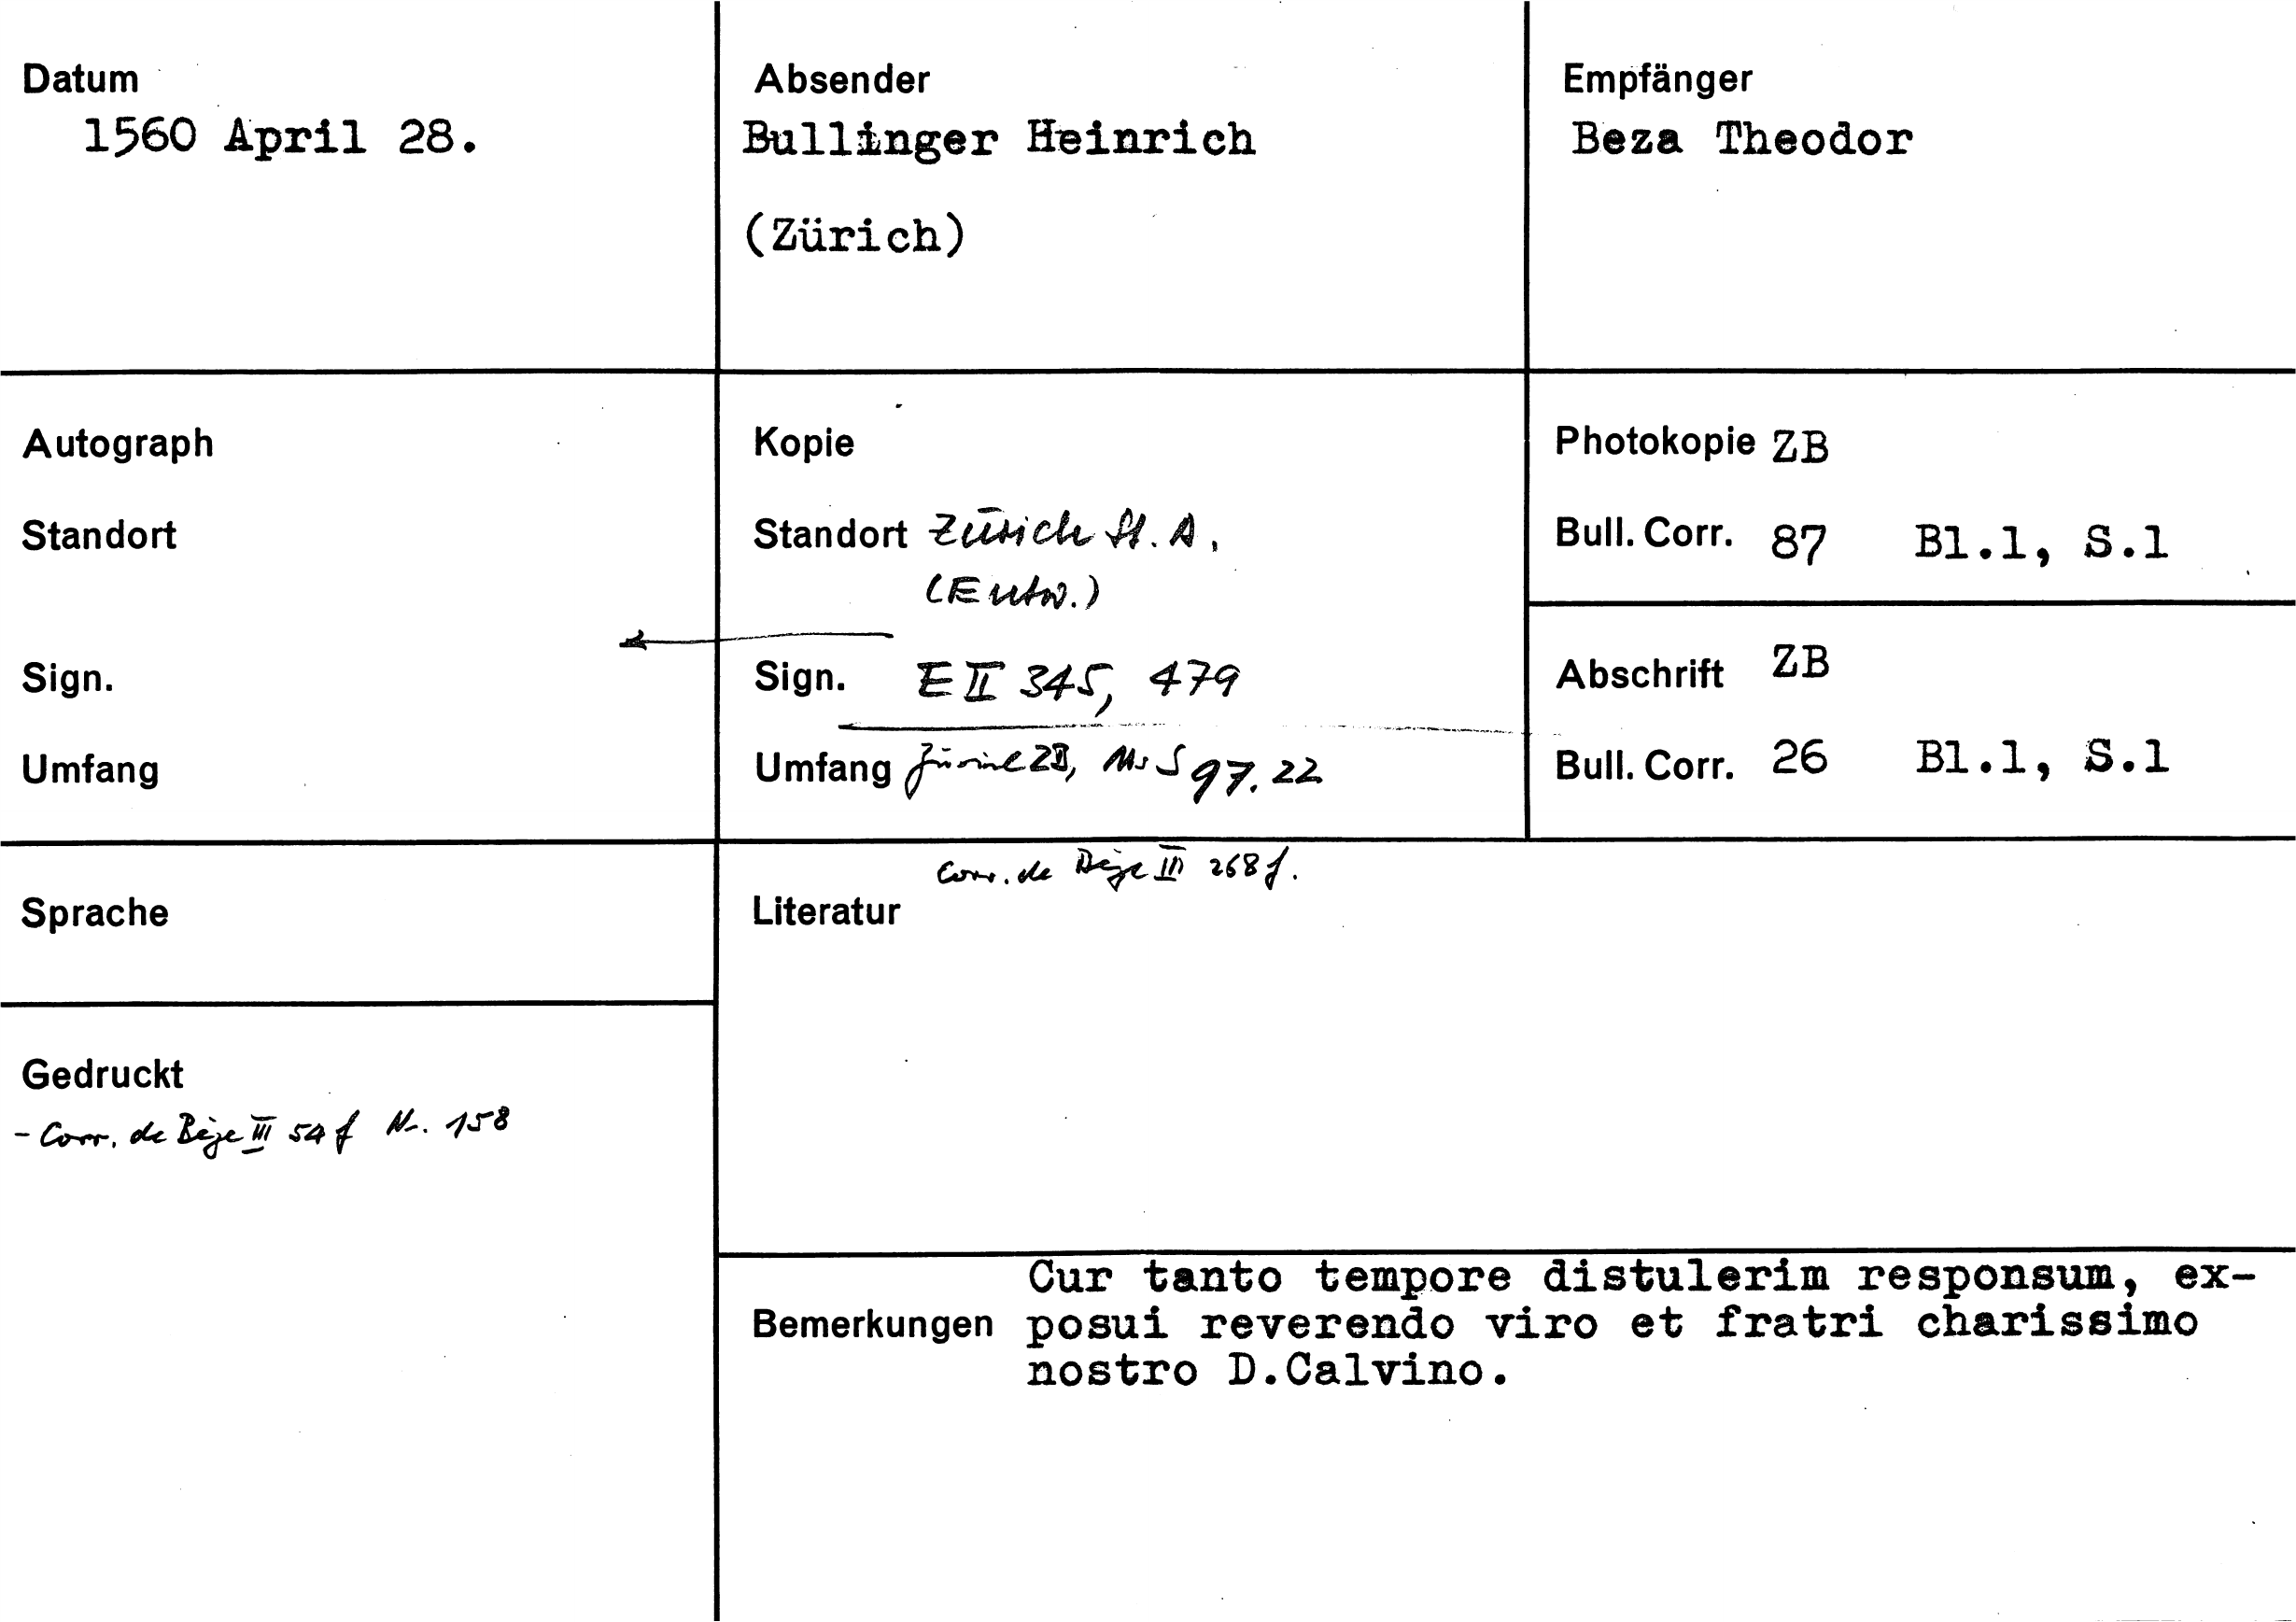 Datum
1560 April 28.
Absender
Bullinger Heinrich
(Zürich)
Empfänger
Beza Theodor
Autograph
Standort
Sign.
Umfang
Kopie
Standort Zürich St. A.
(Entw.)
Sign. E II 345, 479
Umfang Zürich ZB, Ms S 97. 22
Photokopie ZB
Bull. Corr. 87 Bl.1, S.1
Abschrift ZB
Bull. Corr. 26 Bl.1, S.1
Sprache
Gedruckt
- Corr. de Bèze III 54 f Nr. 158
Corr. de Bèze III 268 f.
Literatur
Cur tanto tempore distulerim responsum, ex-
Bemerkungen posui reverendo viro et fratri charissimo
nostro D.Calvino.